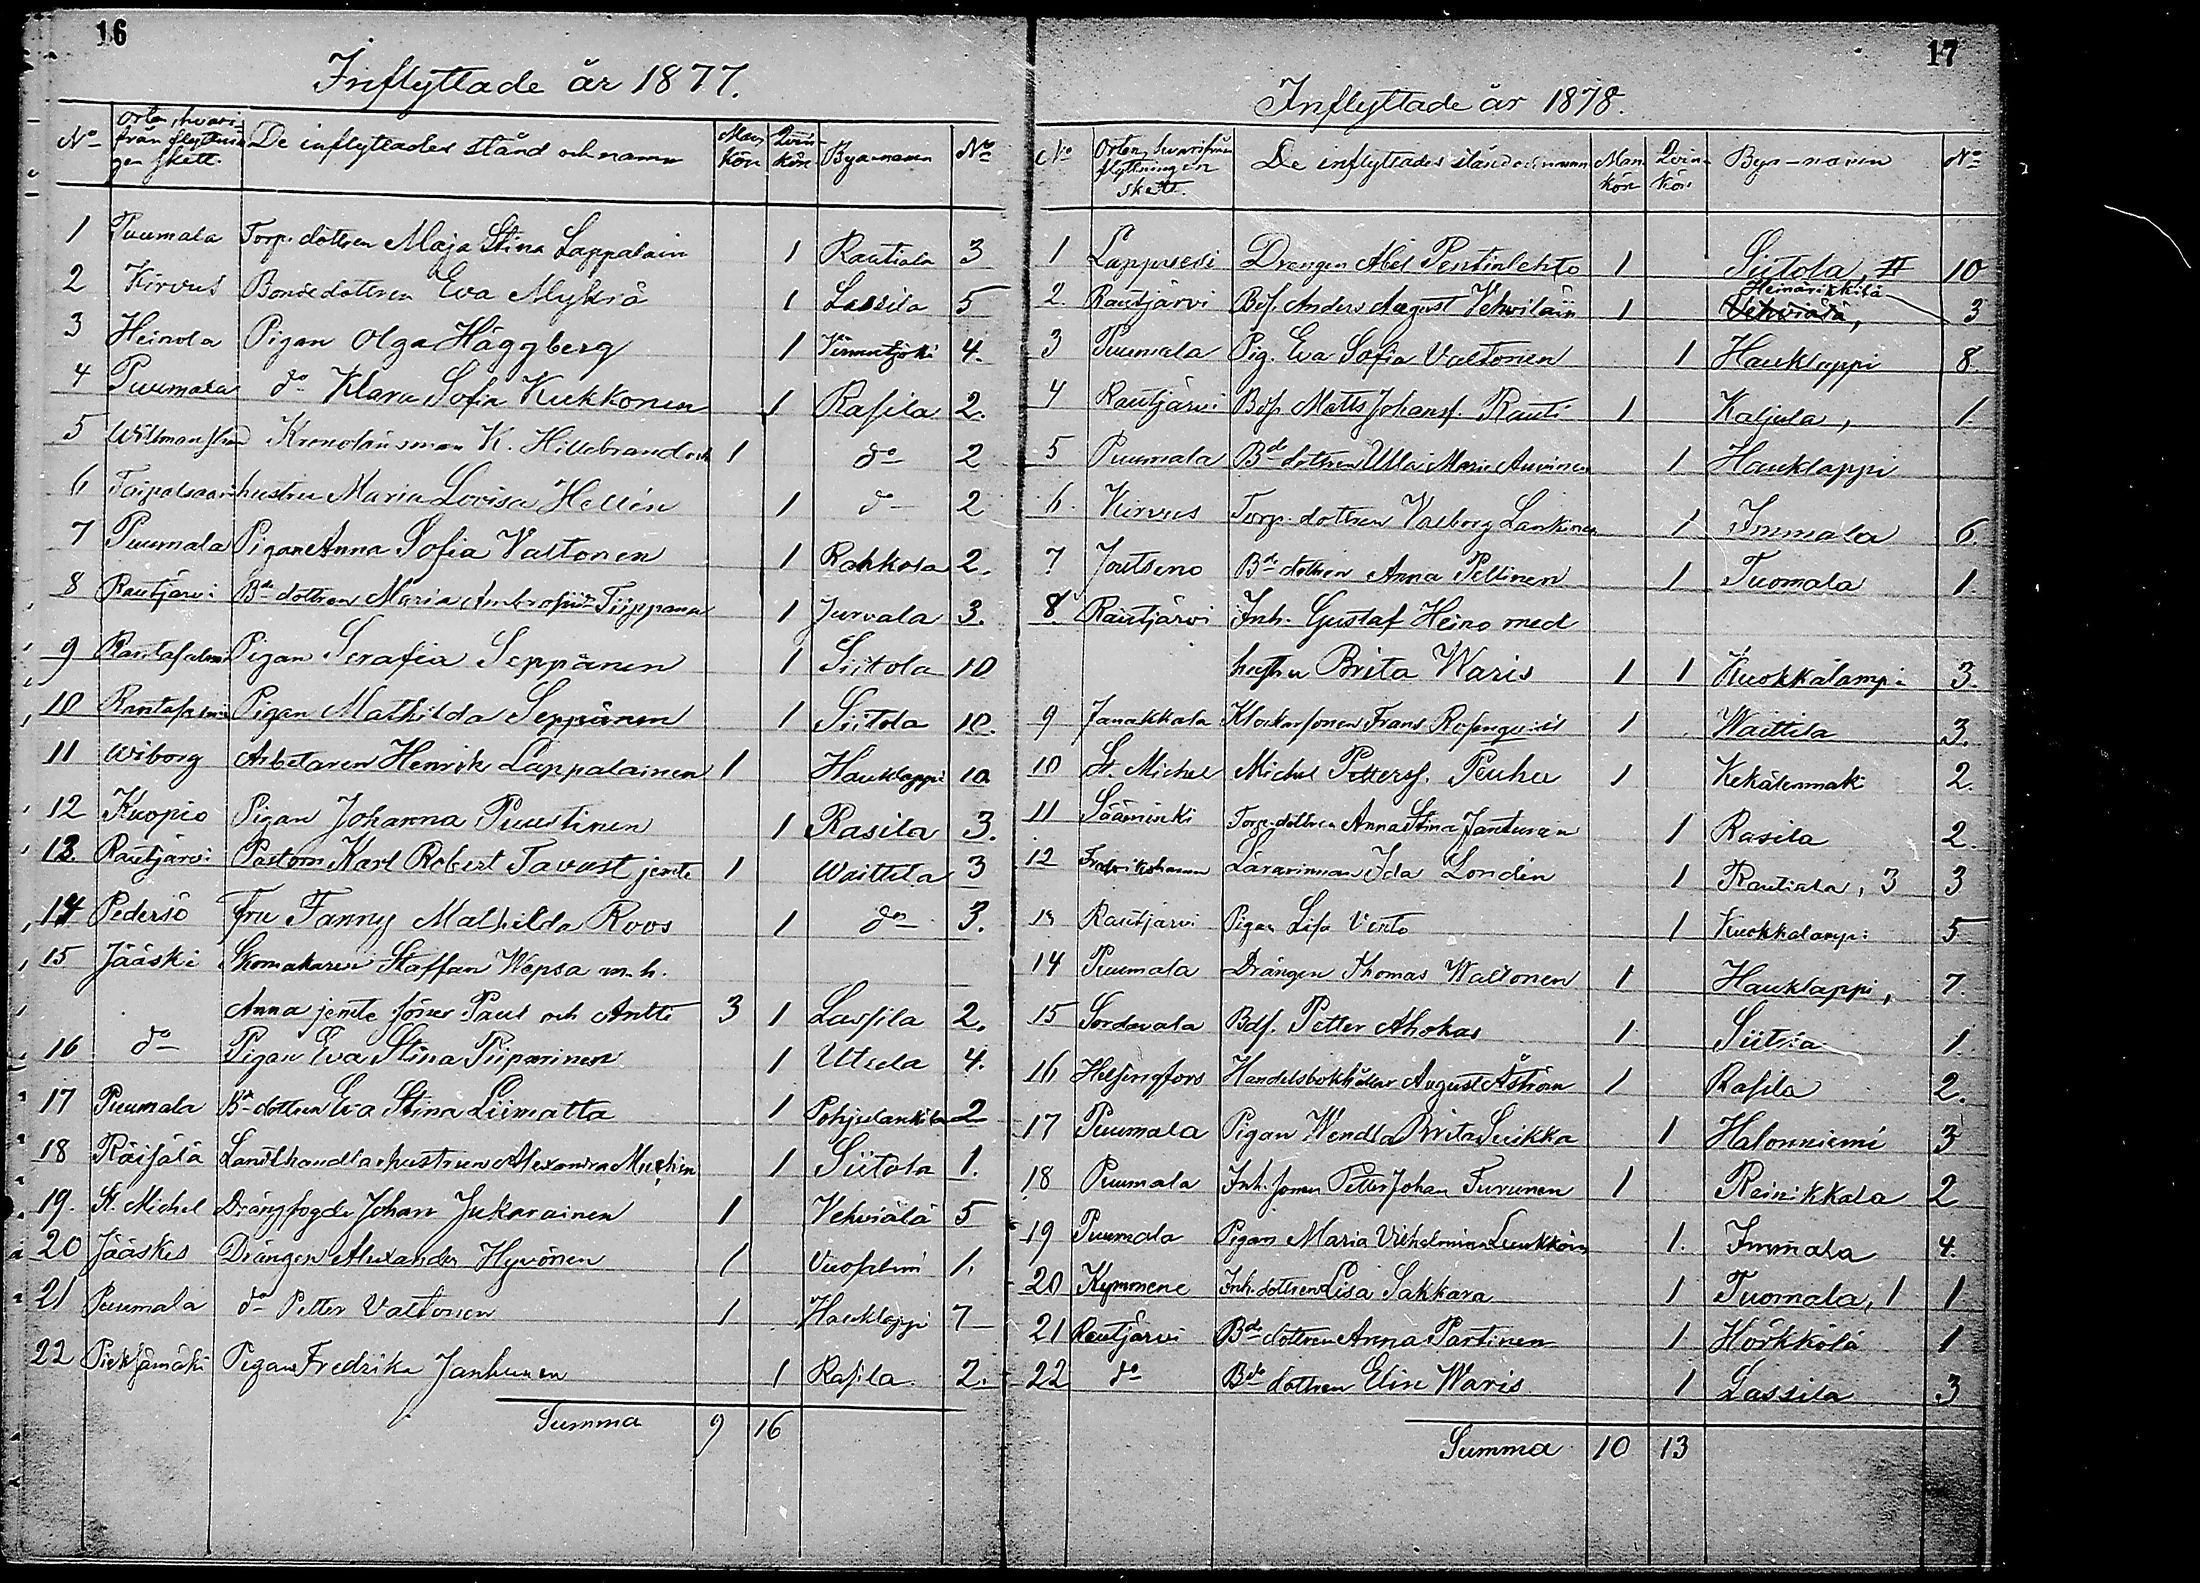 16
Inflyttade år 1877.
No Orten, hvari- från flyttnin- gen skett. De inflyttades stånd och namn Man kön Qvin- kön Bya-namn No
1 Puumala Torp. dottren Maja Stina Lappalain 1 Rautiala 3
2 Kirvus Bondedottren Eva Mykrä 1 Lassila 5
3 Heinola Pigan Olga Häggberg 1 4.
4 Puumala do Klara Sofia Kukkonen 1 Rasila 2.
5 Willmanstrand Kronolänsman K. Hillebrand och 1 do 2
6 Taipalsaari hustru Maria Lovisa Hellén 1 do 2
7 Puumala Pigan Anna Sofia Valtonen 1 Rahkola 2.
8 Rautjärvi Bde dottren Maria Tiippana 1 Jurvala 3.
9 Rantasalmi Pigan Serafia Seppänen 1 Siitola 10
10 Rantasalmi Pigan Mathilda Seppänen 1 Siitola 10.
11 Wiborg Arbetaren Henrik Lappalainen 1 Hauklappi 10
12 Kuopio Pigan Johanna Puustinen 1 Rasila 3.
13. Rautjärvi Pastorn Karl Robert Tavast jemte 1 Waittila 3
14 Pedersö Fru Fanny Mathilda Roos 1 do 3.
15 Jääski Skomakaren Staffan Wepsa m. h.
Anna jemte söner Paul och Antti 3 1 Lassila 2.
16 do Pigan Eva Stina Piiparinen 1 Utula 4.
17 Puumala Bde dottren Eva Stina Liimatta 1 Pohjalankila 2
18 Räisälä Landthandlarhustrun Alexandra Muchin 1 Siitola 1.
19. St. Michel Drängfogde Johan Jukarainen 1 Vehviälä 5
20 Jääskis Drängen Alexander Hyvönen 1 Vuosalmi 1.
21 Puumala do Petter Valtonen 1 Hauklappi 7
22 Pieksämäki Pigan Fredrika Janhunen 1 Rasila 2.
Summa 9 16
17
Inflyttade år 1878.
No Orten, hvarifrån flyttningen skett. De inflyttades stånd och namn Man kön Qvin- kön Bya-namn No
1 Lappvesi Drengen Abel Penttinlehto 1 Siitola, II 10
2. Rautjärvi Bds. Anders August Vehviläin 1 Vehviälä, Heinarikkilä 3
3 Puumala Pig. Eva Sofia Valtonen 1 Hauklappi 8.
4 Rautjärvi Bds Matts Johanss. Rauti 1 Kaljula, 1.
5 Puumala Bde dottren Ulla Maria Auvinen 1 Hauklappi
6. Kirvus Torp. dottren Valborg Lankinen 1 Immala 6.
7 Joutseno Bde dottren Anna Peltinen 1 Tuomala 1.
8. Rautjärvi Inh. Gustaf Heino med
hustru Brita Waris 1 1 Kuokkalampi 3.
9 Janakkala Klockarsonen Frans Rosenqvist 1 Waittila 3.
10 St. Michel Michel Petterss. Peuhu 1 Kekäleenmäki 2.
11 Sääminki Torp. dottren Anna Stina Jantunen 1 Rasila 2.
12 Fredrikshamn Lärarinnan Ida Londén 1 Rautiala, 3 3
13 Rautjärvi Pigan Lisa Virto 1 Kuokkalampi 5
14 Puumala Drängen Thomas Waltonen 1 Hauklappi, 7.
15 Sordavala Bds. Petter Ahokas 1 Siitola 1.
16 Helsingfors Handelsbokhållar August Åström 1 Rasila 2.
17 Puumala Pigan Wendla Brita Suikka 1 Halonniemi 3
18 Puumala Inh. sonen Petter Johan Turunen 1 Reinikkala 2
19 Puumala Pigan Maria Vilhelmina Luukkonen 1. Immala 4.
20 Kymmene Inh. dottren Lisa Sakkara 1 Tuomala, 1 1
21 Rautjärvi Bde dottren Anna Partinen 1 Hörkkölä 1
22 do Bde dottren Elin Waris 1 Lassila 3
Summa 10 13